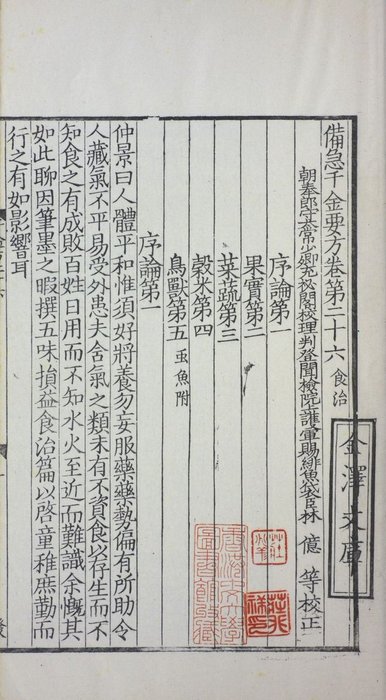 備急千金要方卷第二十六 食治
朝奉郎守太常少卿充祕閣校理判登聞檢院上護軍賜緋魚袋臣林 億 等校正
序論第一
果實第二
菜蔬第三
穀米第四
鳥獸第五 虫魚附
序論第一
仲景曰人體平和惟須好將養勿妄服藥藥勢偏有所助令
人藏氣不平易受外患夫含氣之類未有不資食以存生而不
知食之有成敗百姓日用而不知水火至近而難識余慨其
如此聊因筆墨之暇撰五味損益食治篇以啓童稚庶勤而
行之有如影響耳
金澤文庫